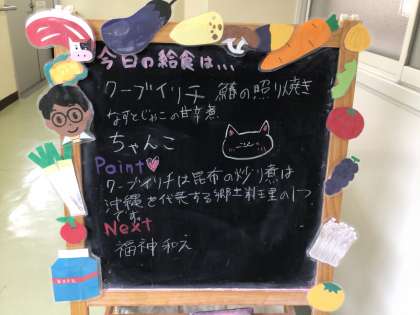 今日の給食は...
クーブイリチ 鰆の照り焼き
なすとじゃこの甘辛煮
ちゃんこ
Point♥
クーブイリチは昆布の炒り煮は
沖縄を代表する郷土料理の1つ
です。
Next
福神和え